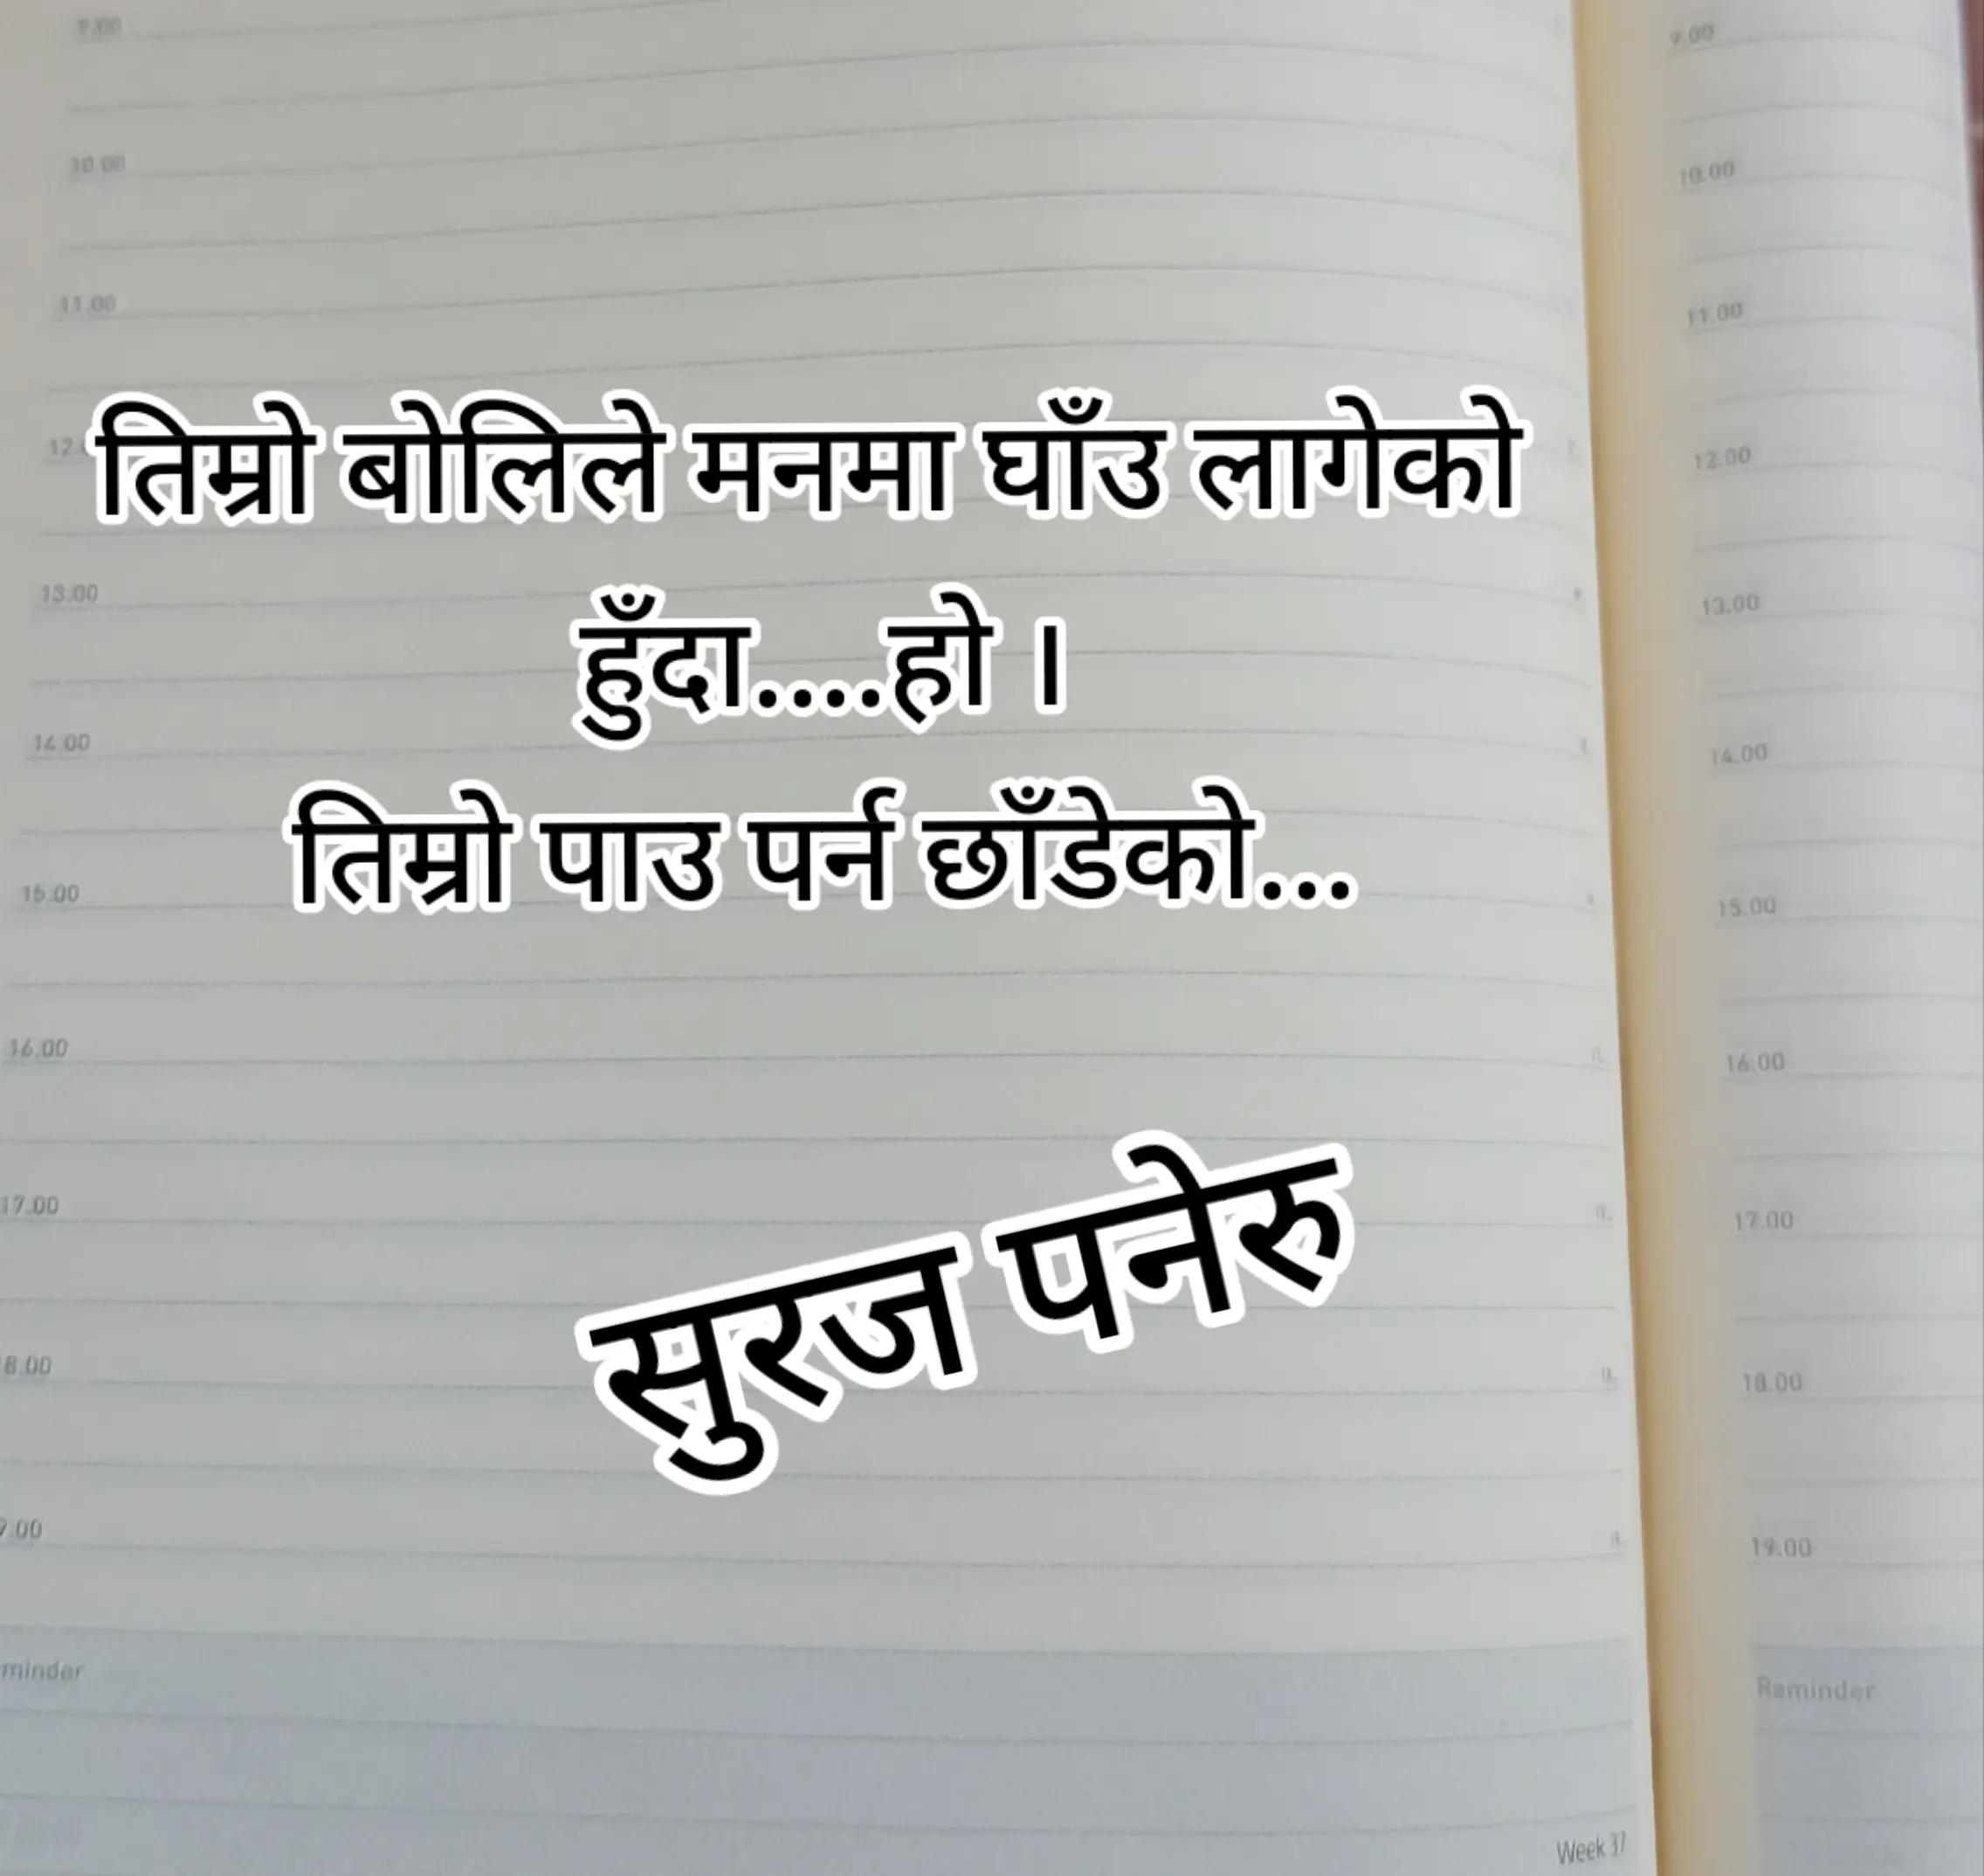 9.00
10.00
11.00
तिम्रो बोलिले मनमा घाँउ लागेको
हुँदा....हो ।
तिम्रो पाउ पर्न छाँडेको...
सुरज पनेरु
13.00
14.00
16.00
17.00
minder
Week 37
9.00
10.00
11.00
12.00
13.00
14.00
15.00
16.00
17.00
18.00
19.00
Reminder